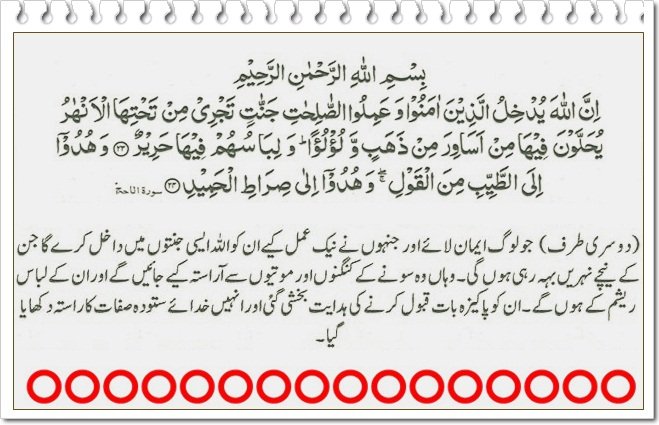 بِسْمِ اللهِ الرَّحْمٰنِ الرَّحِيْمِ
اِنَّ اللهَ يُدْخِلُ الَّذِيْنَ اٰمَنُوْا وَ عَمِلُوا الصّٰلِحٰتِ جَنّٰتٍ تَجْرِيْ مِنْ تَحْتِهَا الْاَنْهٰرُ
يُحَلَّوْنَ فِيْهَا مِنْ اَسَاوِرَ مِنْ ذَهَبٍ وَّ لُؤْلُؤًا ؕ وَ لِبَاسُهُمْ فِيْهَا حَرِيْرٌ ﴿۲۳﴾ وَ هُدُوْۤا
اِلَى الطَّيِّبِ مِنَ الْقَوْلِ ۖۚ وَ هُدُوْۤا اِلٰى صِرَاطِ الْحَمِيْدِ ﴿۲۴﴾ سورة الحج
(دوسری طرف) جو لوگ ایمان لائے اور جنہوں نے نیک عمل کیے ان کو اللہ ایسی جنتوں میں داخل کرے گا جن
کے نیچے نہریں بہہ رہی ہوں گی۔ وہاں وہ سونے کے کنگنوں اور موتیوں سے آراستہ کیے جائیں گے اور ان کے لباس
ریشم کے ہوں گے۔ ان کو پاکیزہ بات قبول کرنے کی ہدایت بخشی گئی اور انہیں خدائے ستودہ صفات کا راستہ دکھایا
گیا۔